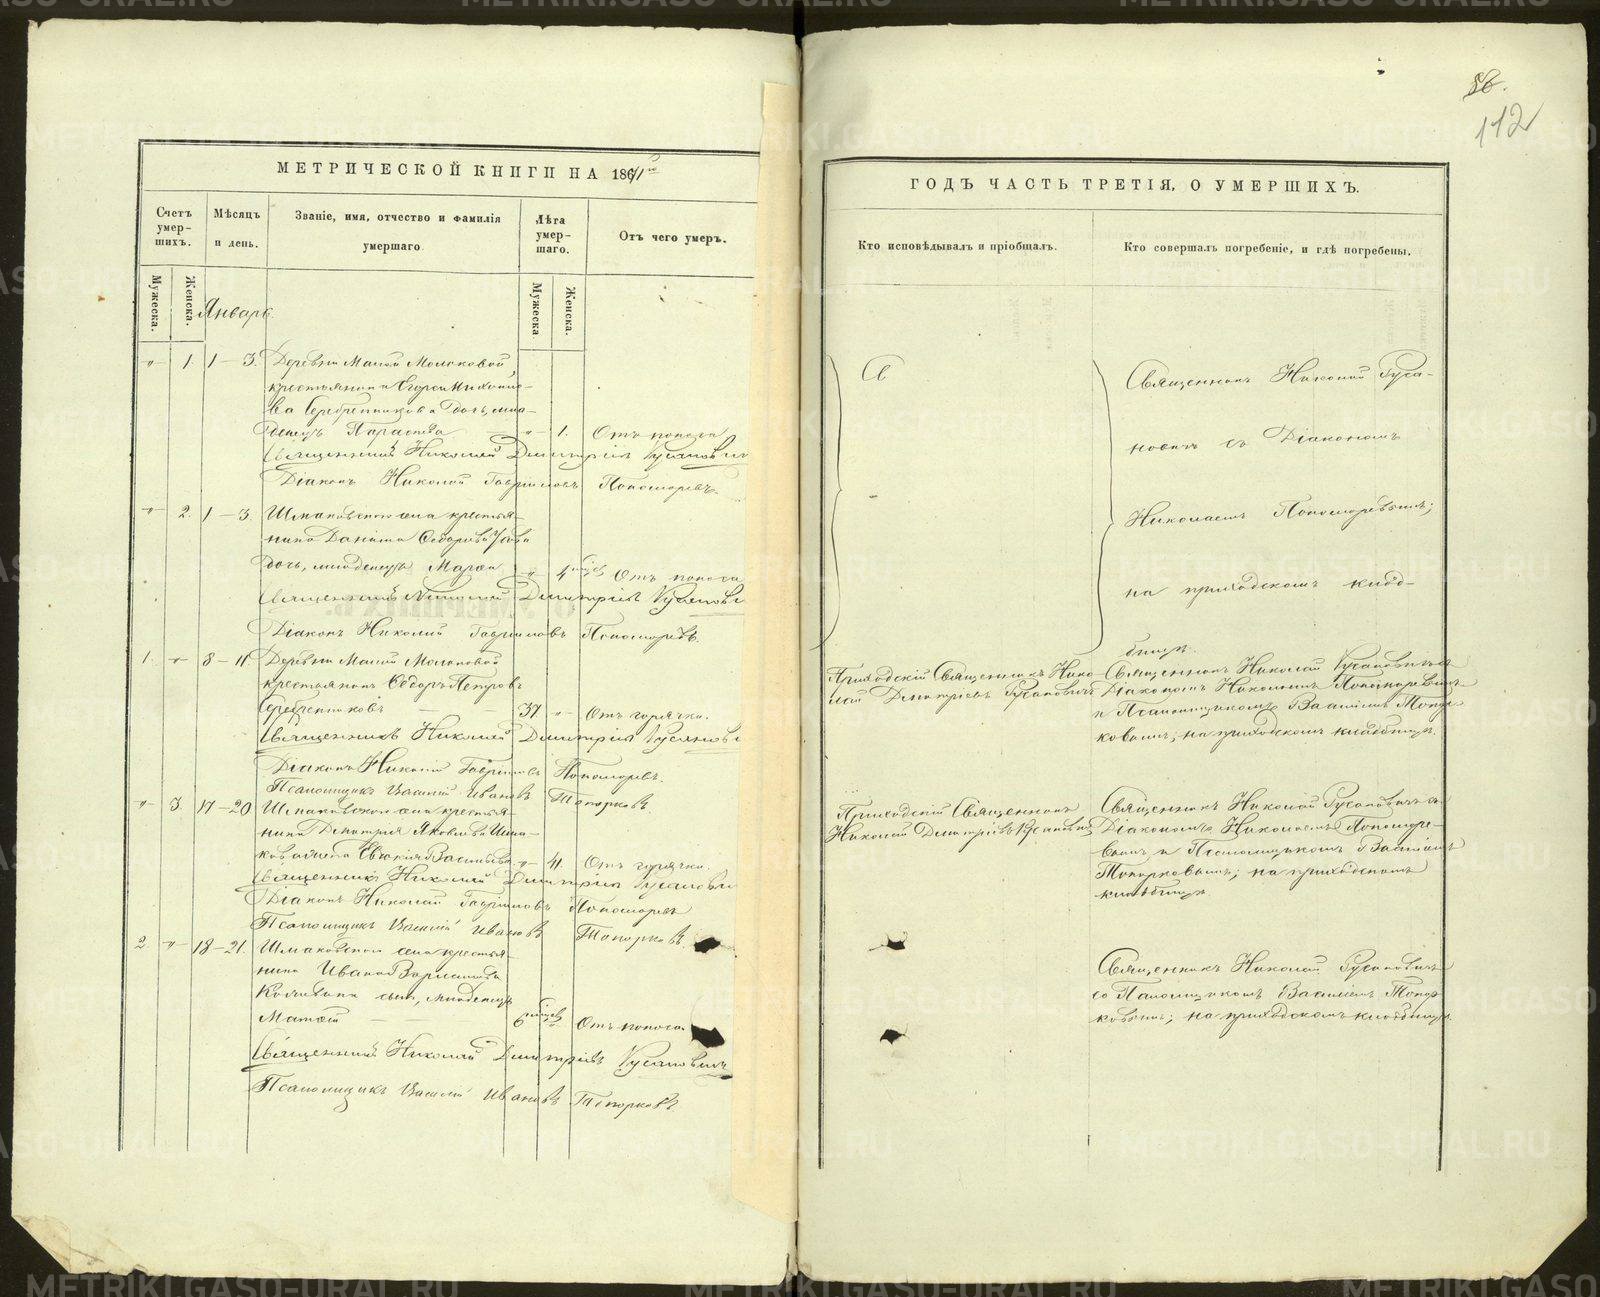 86.
112
МЕТРИЧЕСКОЙ КНИГИ НА 1861
Счетъ умер-шихъ.
Мѣсяцъ и день.
Званіе, имя, отчество и фамилія умершаго
Лѣта умер-шаго.
Отъ чего умеръ.
Мужеска.
Женска.
Мужеска
Женска.
Январь.
" 1. 1 – 3. Деревни Малой Молоковой
крестьянина Егора
ва Серебренникова дочь, мла-
денецъ Параскева " 1. Отъ поноса
Священникъ Николай Димитріевъ Русановичъ
Діаконъ Николай Гавриловъ Пономаревъ.
" 2. 1 – 3. Шмаковскаго села крестья-
нина Данила Ѳедорова
дочь, младенецъ Марѳа " 4 мѣсяц Отъ поноса
Священникъ Николай Димитріевъ Русанови
Діаконъ Николай Гавриловъ Пономаревъ.
1. " 8 – 11. Деревни Малой Молоковой
крестьянинъ Ѳедоръ Петровъ
Серебренниковъ 37 " Отъ горячки.
Священникъ Николай Димитріевъ Русанови
Діаконъ Николай Гавриловъ Пономаревъ.
Псаломщикъ Василій Ивановъ Топорковъ
" 3. 17 – 20 Шмаковскаго села крестья-
нина Димитрія Яковлева Шма-
кова жена Евдокія Васильева " 41. Отъ горячки.
Священникъ Николай Димитріевъ Русанови
Діаконъ Николай Гавриловъ Пономаревъ
Псаломщикъ Василій Ивановъ Топорковъ.
2 " 18 – 21. Шмаковскаго села крестья-
нина Ивана
сынъ, младенецъ
Матѳей 6 мѣсяцев Отъ поноса
Священникъ Николай Димитріевъ Русановичъ
Псаломщикъ Василій Ивановъ Топорковъ
ГОДЪ ЧАСТЬ ТРЕТІЯ, О УМЕРШИХЪ.
Кто исповѣдывалъ и пріобщалъ.
Кто совершалъ погребеніе, и гдѣ погребены.
Священникъ Николай Руса-
новичъ съ Діакономъ
Николаемъ Пономаревымъ;
на приходскомъ кладб-
бищѣ.
Приходскій Священникъ Нико-
лай Димитріевъ Русановичъ
Священникъ Николай Русановичъ съ
Діакономъ Николаемъ Пономаревымъ
и Псаломщикомъ Василіемъ Топор-
ковымъ; на приходскомъ кладбищѣ.
Приходскій Священникъ
Николай Димитріевъ Русановичъ
Священникъ Николай Русановичъ съ
Діакономъ Николаемъ Пономаре-
вымъ и Псаломщикомъ Василіемъ
Топорковымъ; на приходскомъ
кладбищѣ
Священникъ Николай Русановичъ
со Псаломщикомъ Василіемъ Топор-
ковымъ; на приходскомъ кладбищѣ.
METRIKI.GASO-URAL.RU